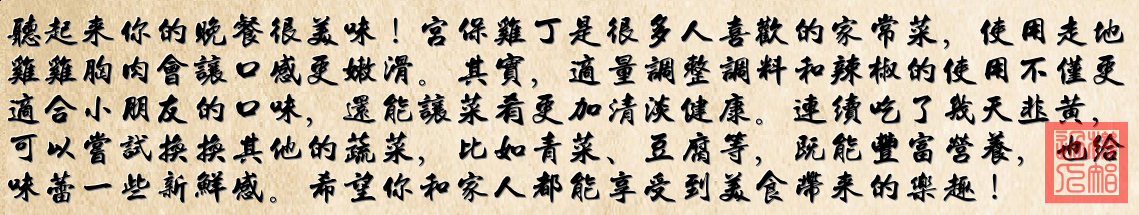 聽起来你的晚餐很美味！宮保雞丁是很多人喜歡的家常菜，使用走地
雞雞胸肉會讓口感更嫩滑。其實，適量調整調料和辣椒的使用不僅更
適合小朋友的口味，還能讓菜肴更加清淡健康。連續吃了幾天韭黃，
可以嘗試換換其他的蔬菜，比如青菜、豆腐等，既能豐富營養，也給
味蕾一些新鮮感。希望你和家人都能享受到美食帶来的樂趣！